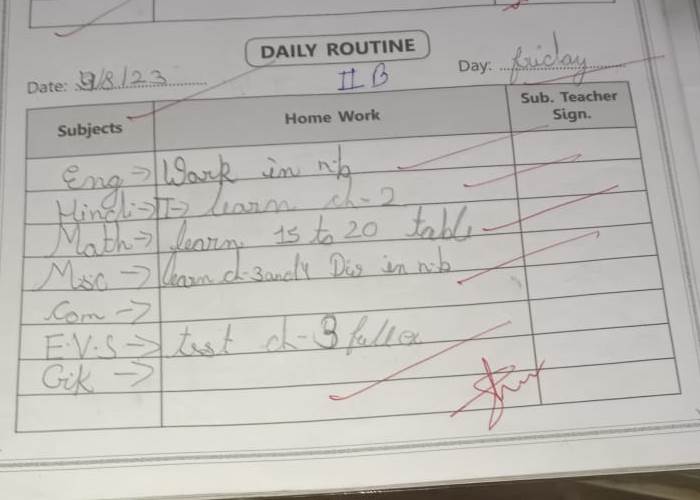 DAILY ROUTINE
Date: 9/8/23 II B Day: friday
Subjects Home Work Sub. Teacher Sign.
Eng → Work in n·b
Hindi → II → learn ch-2
Math → learn 15 to 20 table
Msc → learn ch-3 and 4 in n·b
Com →
E.V.S → test ch-3 full
G.k →